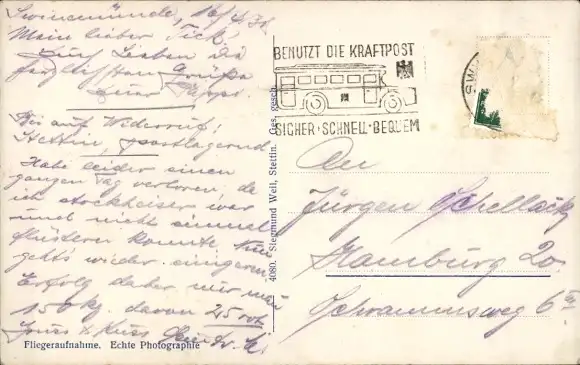 Swinemünde, 16/4.34.
Mein lieber Dick!
Euch Lieben die
herzlichsten Grüße
Euer
Bis auf Widerruf:
Stettin, postlagernd.
Habe leider einen
ganzen Tag verloren, da
ich stockheiser war
und nicht einmal
flüstern konnte. Nun
geht's wieder einigerm.
Erfolg daher nur
150 kg. davon 25 rot.
Gruss & Kuss
Fliegeraufnahme. Echte Photographie
4080. Siegmund Weil, Stettin. Ges. gesch.
BENUTZT DIE KRAFTPOST
SICHER · SCHNELL · BEQUEM
SW
An
Jürgen Schellack
Hamburg 20
Schrammsweg 6